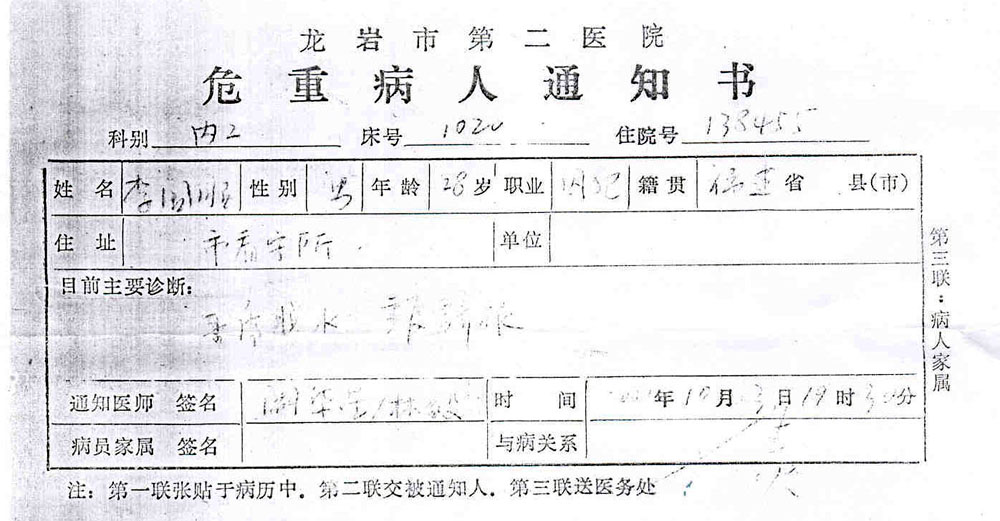 龙岩市第二医院
危重病人通知书
科别 内2 床号 1020 住院号 138455
姓名 李 性别 男 年龄 28岁 职业 籍贯 福建省 县(市)
住址 市看守所 单位
目前主要诊断:
脱水
通知医师 签名 时间 年10月3日19时30分
病员家属 签名 与病关系
注: 第一联张贴于病历中. 第二联交被通知人. 第三联送医务处
第三联:病人家属